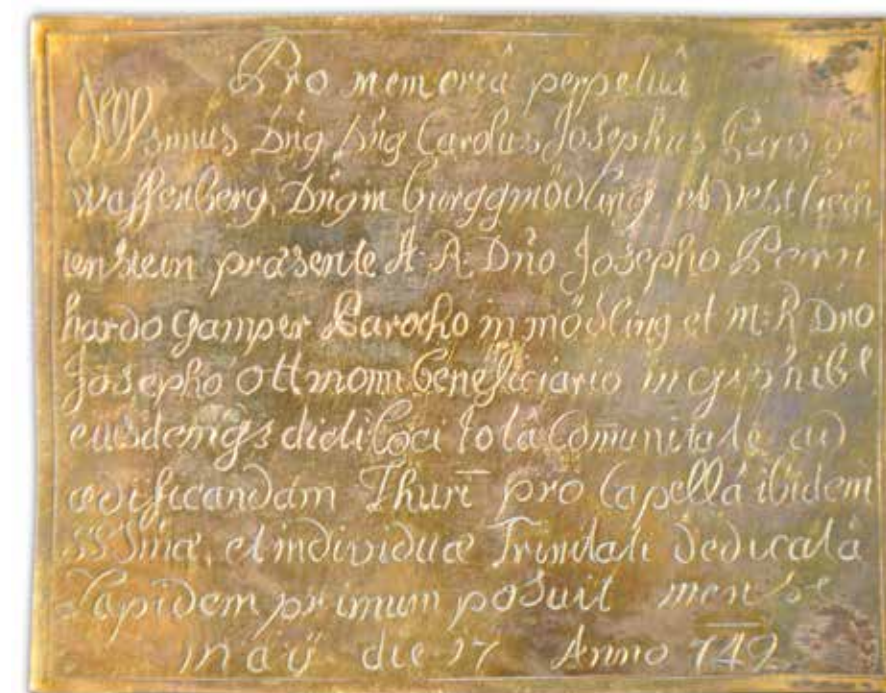 Pro memoriâ perpetuâ
Illssmus Dng Dng Carolus Josephus Baro de
Waffenberg, Dngm Burggmödling, et Vest liech
tenstein præsente A: R: Dno Josepho Bern
hardo Gamper Parocho in mödling et m: R Dno
Josepho Ottmom Beneficiario in
eiusdemqs dicti Loci totâ Comunitate ad
ædificandam Thuri pro Capellâ ibidem
SS Sinæ, et individuæ Trinitati dedicatâ
Lapidem primum posuit mense
maÿ die 17 Anno 749